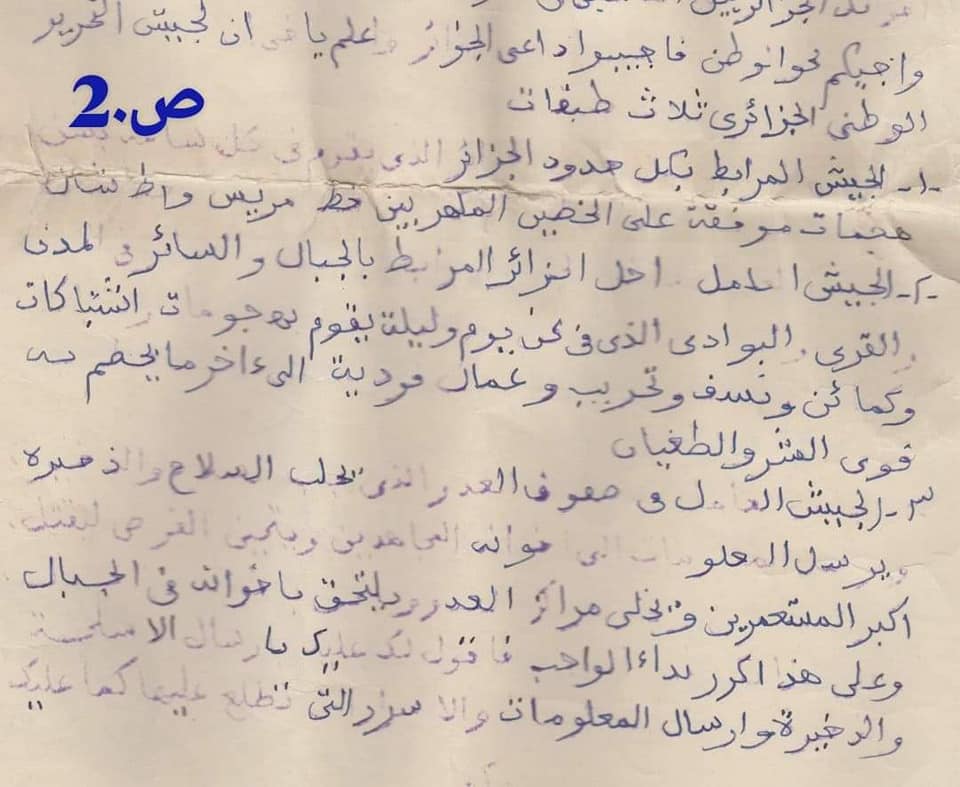 واجبكم نحو الوطن فاجيبوا داعى الجزائر واعلم يا اخى ان لجيش التحرير
ص.2
الوطنى الجزائرى ثلاث طبقات
-١- الجيش المرابط بكل حدود الجزائر الذى يقوم فى كل ساعة بشن
هجمات موفقة على الخطين المكهربين خط مريس واط شال
-٢- الجيش العامل داخل الجزائر المرابط بالجبال والسائر فى المدن
والقرى والبوادى الذى فى كل يوم وليلة يقوم بهجومات واشتباكات
وكمائن ونسف وتخريب وعمال فردية الى ءاخر ما يحضم به
قوى الشر والطغيان
٣-الجيش العامل فى صفوف العدو الذى يجلب السلاح والذخيرة
ويرسل المعلومات الى اخوانه المجاهدين ويتحين الفرص لقتل
اكبر المستعمرين وتخلى مراكز العدو ويلتحق باخوانه فى الجبال
وعلى هذا اكرر نداء الواجب فاقول لك عليك بارسال الاسلحة
والذخيرة وارسال المعلومات والاسرار التى تطلع عليها كما عليك